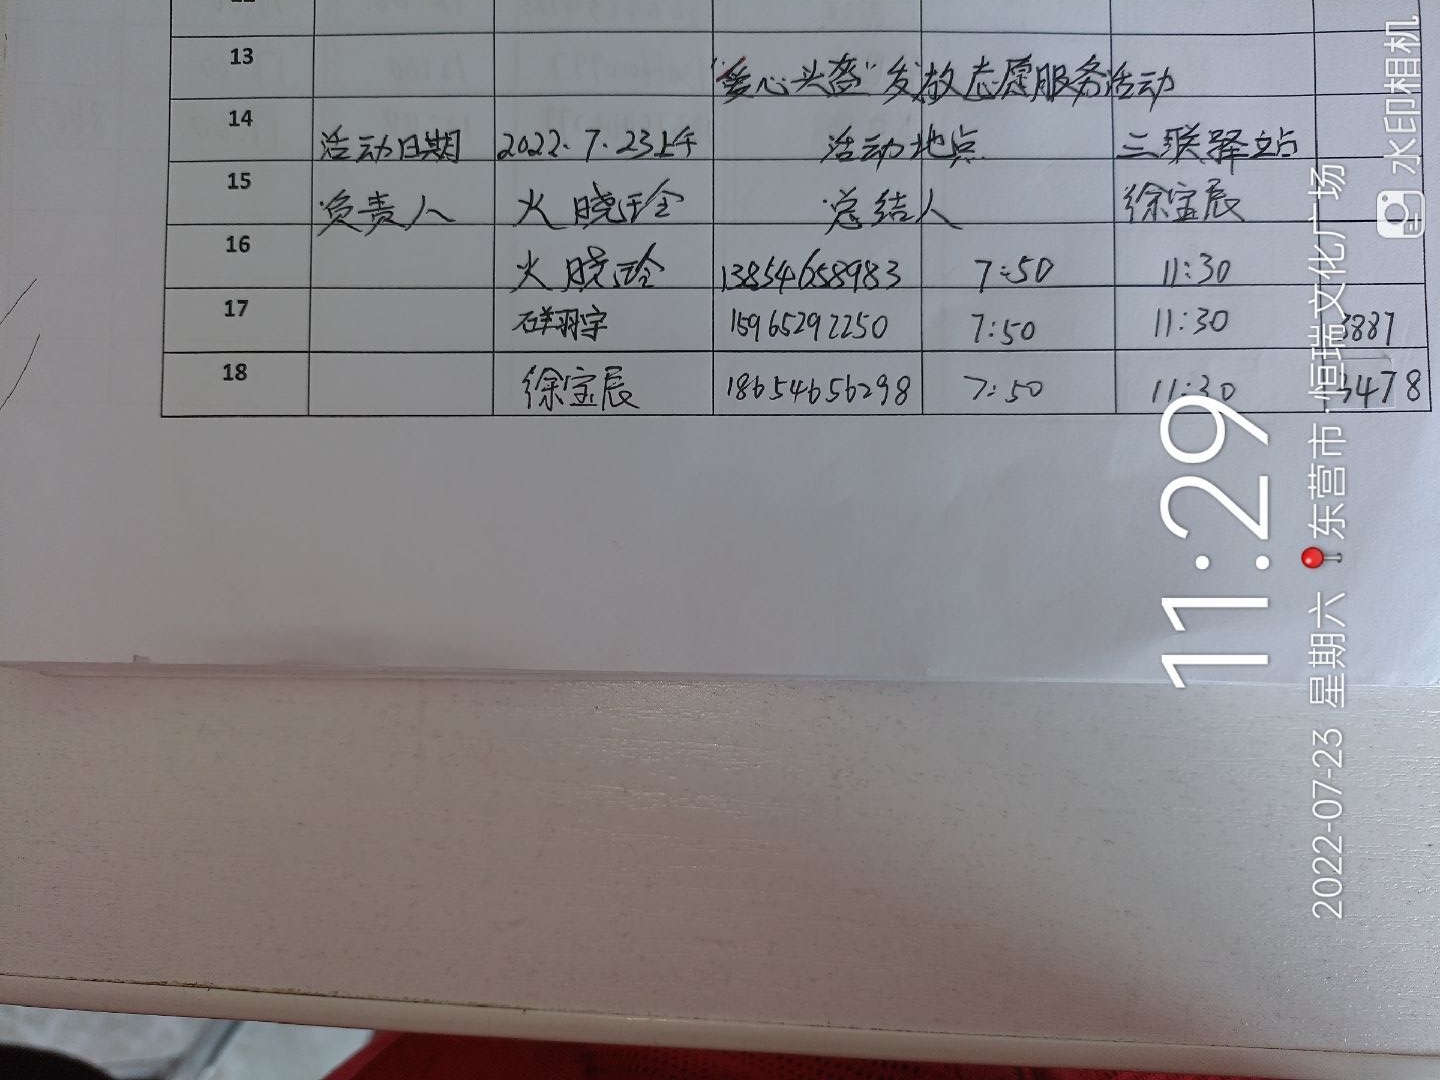 13 “爱心头盔”发放志愿服务活动
14 活动日期 2022.7.23上午 活动地点 三联驿站
15 负责人 火晓玲 总结人 徐宝辰
16 火晓玲 13854658983 7:50 11:30
17 15965292250 7:50 11:30 3887
18 徐宝辰 18654656298 7:50 11:30 3478
11:29
2022-07-23 星期六 东营市·恒瑞文化广场
水印相机